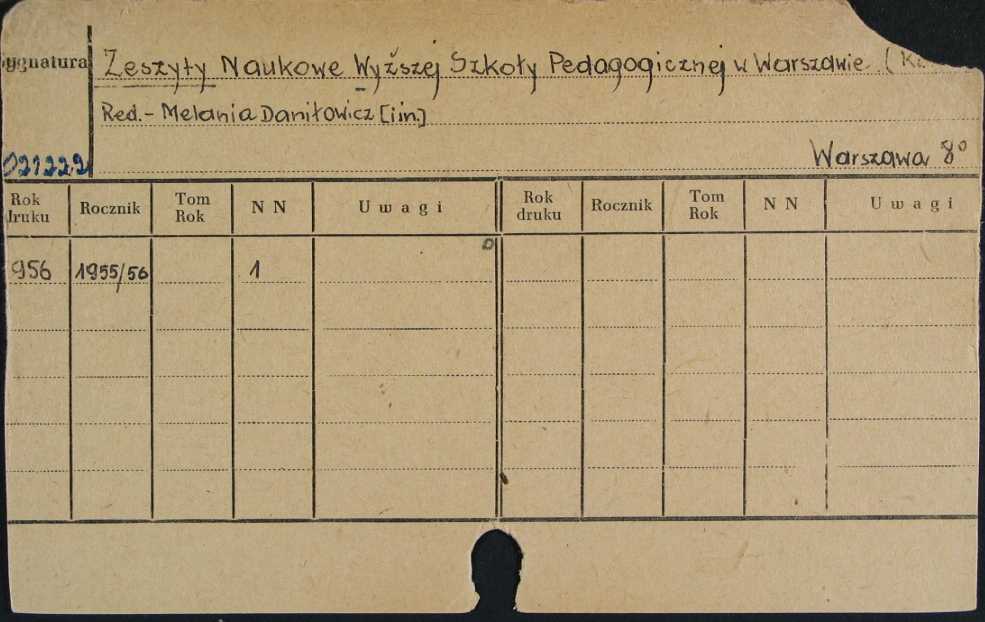 ygnatura Zeszyty Naukowe Wyższej Szkoły Pedagogicznej w Warszawie. (K
Red.- Melania Daniłowicz [i in.]
021222 Warszawa 8°
Rok druku Rocznik Tom Rok N N Uwagi Rok druku Rocznik Tom Rok N N Uwagi
956 1955/56 1